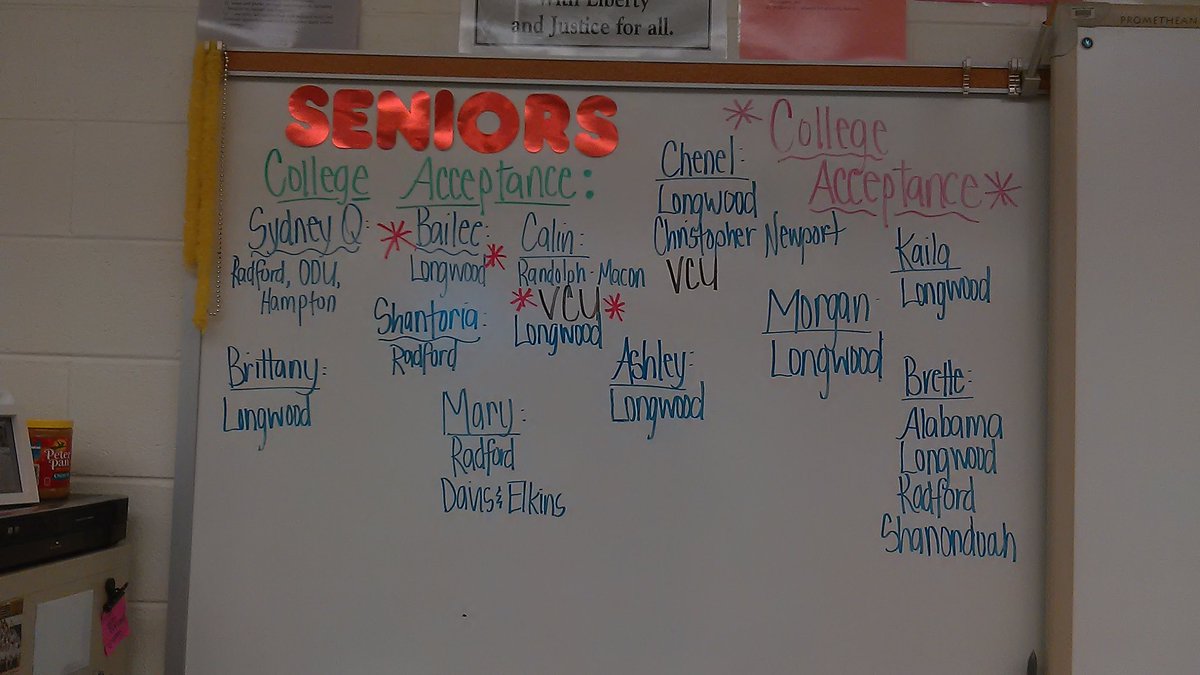 with Liberty
and Justice for all.
PROMETHEAN
SENIORS
College Acceptance:
*College
Acceptance*
Sydney Q:
Radford, ODU,
Hampton
*Bailee:*
Longwood
Calin:
Randolph-Macon
*VCU*
Longwood
Chenel:
Longwood
Christopher Newport
VCU
Kaila
Longwood
Shantoria:
Radford
Morgan:
Longwood
Brittany:
Longwood
Mary:
Radford
Davis & Elkins
Ashley:
Longwood
Brette:
Alabama
Longwood
Radford
Shanonduah
Peter
Pan